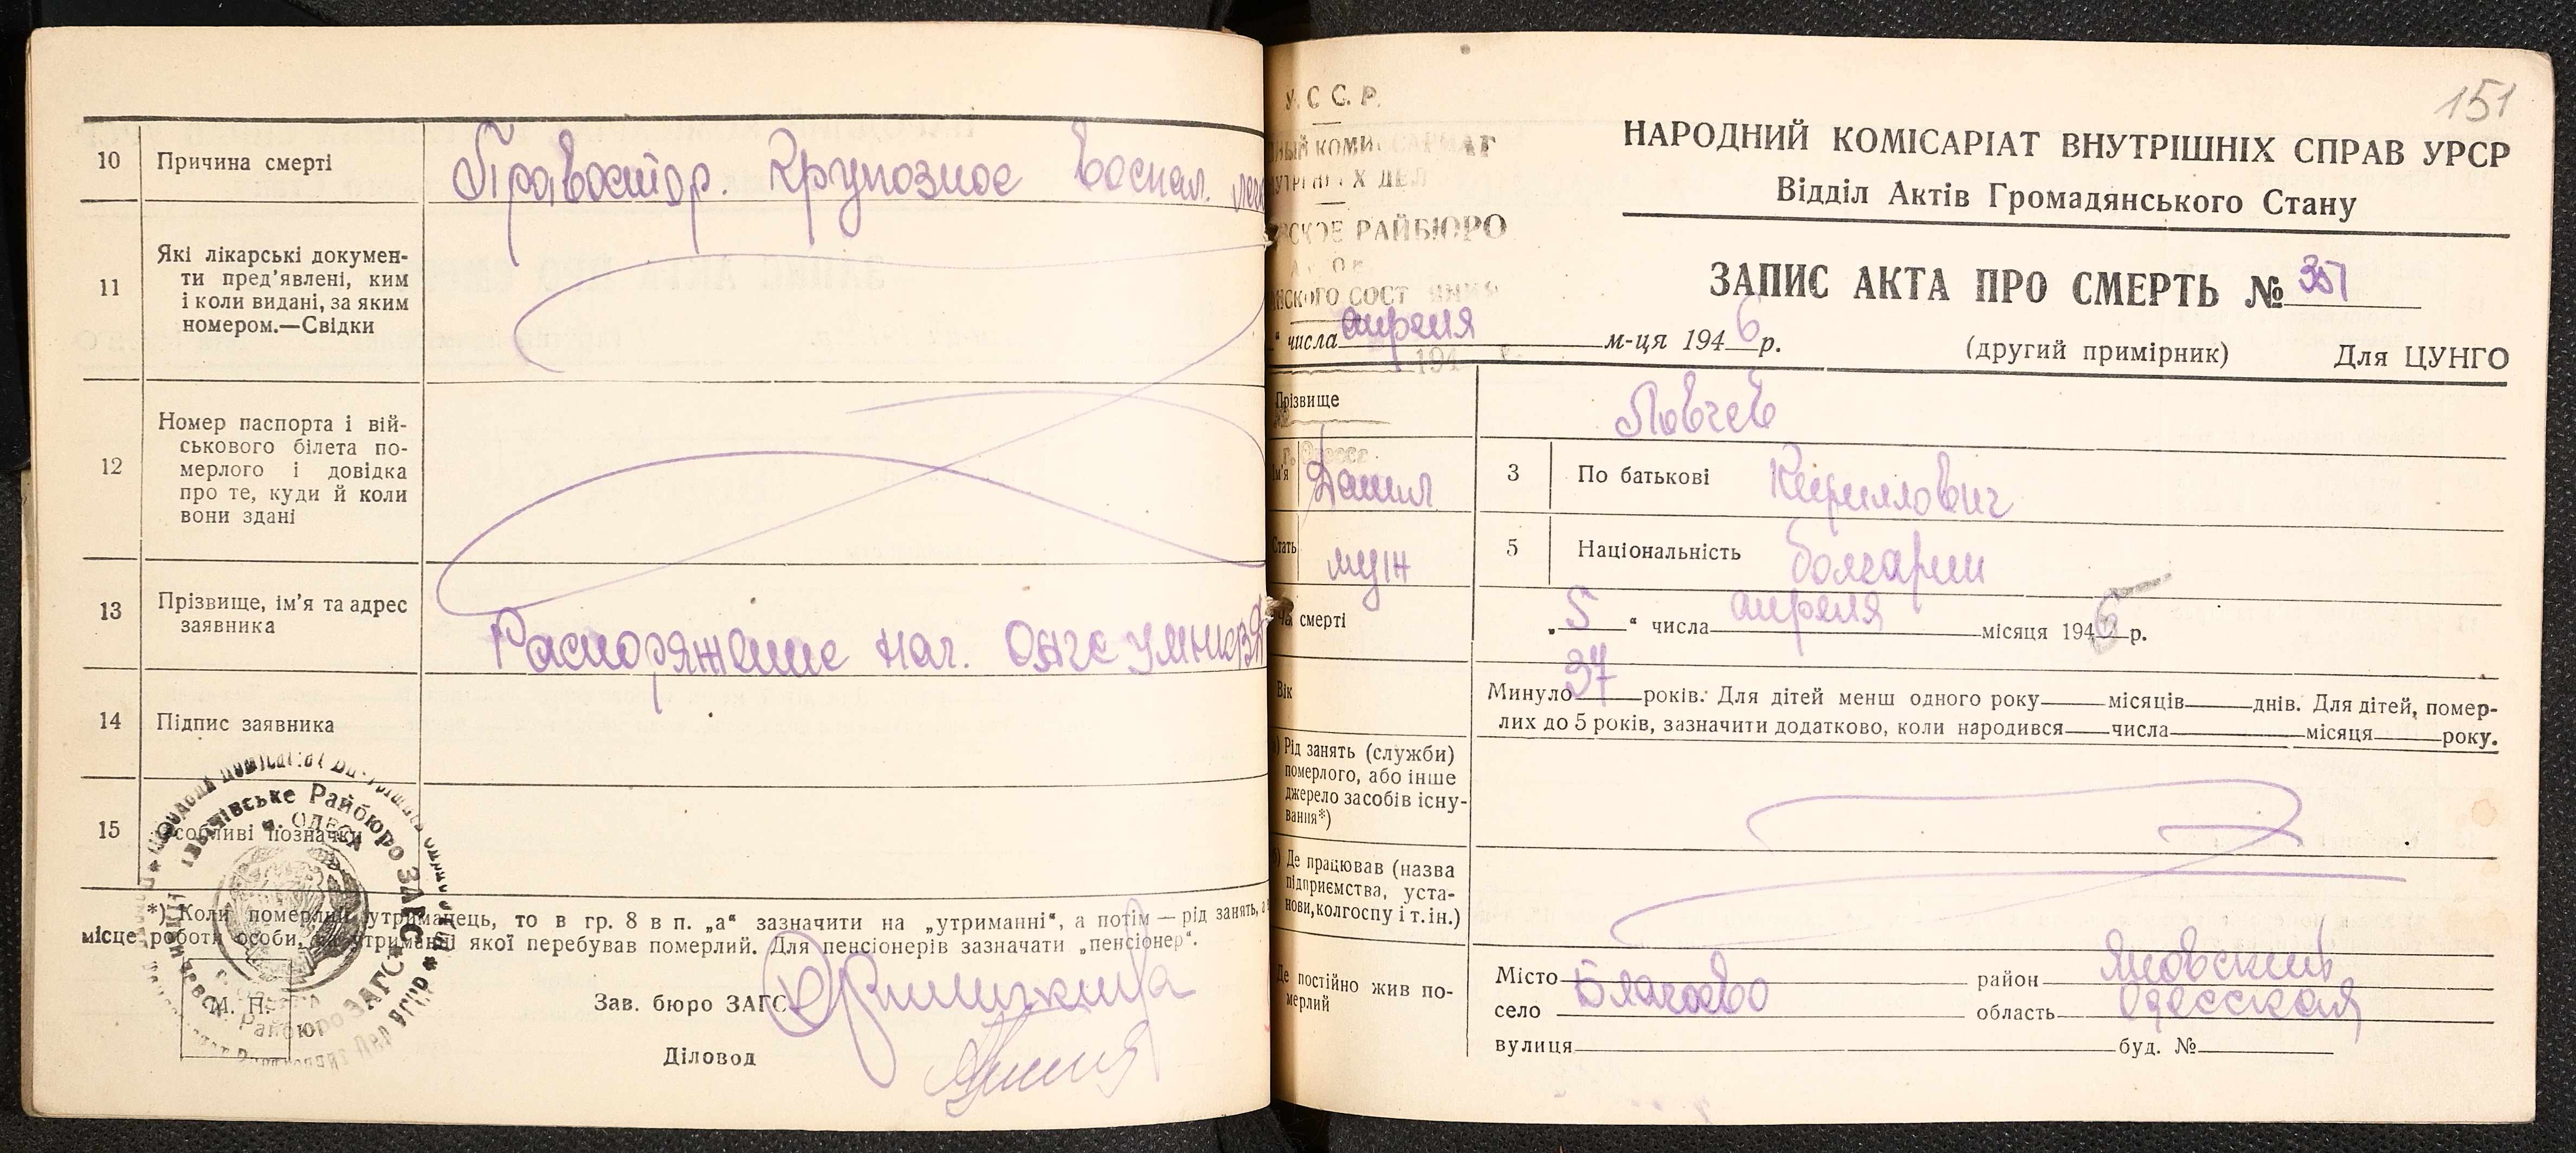 10 Причина смерті Правостор. Крупозное воспал. лего
11 Які лікарські докумен-
ти пред'явлені, ким
і коли видані, за яким
номером.—Свідки
12 Номер паспорта і вій-
ськового білета по-
мерлого і довідка
про те, куди й коли
вони здані
13 Прізвище, ім'я та адрес
заявника
Распоряжение нач.
14 Підпис заявника
15 Особливі позначки
*) Коли померлий утриманець, то в гр. 8 в п. „а“ зазначити на „утриманні“, а потім — рід занять, а
місце роботи особи, на утриманні якої перебував померлий. Для пенсіонерів зазначати „пенсіонер“.
Райбюро ЗАГС
м. ОДЕСА
М. П.
Зав. бюро ЗАГС
Діловод
151
У. С. С. Р.
РАЙБЮРО
НАРОДНИЙ КОМІСАРІАТ ВНУТРІШНІХ СПРАВ УРСР
Відділ Актів Громадянського Стану
ЗАПИС АКТА ПРО СМЕРТЬ № 351
“ числа апреля м-ця 1946 р. (другий примірник) Для ЦУНГО
Прізвище Ловчев
Ім'я Данил 3 По батькові Кириллович
Стать муж 5 Національність болгарин
смерті „5“ числа апреля місяця 1946 р.
Вік Минуло 37 років. Для дітей менш одного року місяців днів. Для дітей, помер-
лих до 5 років, зазначити додатково, коли народився числа місяця року.
) Рід занять (служби)
померлого, або інше
джерело засобів існу-
вання*)
) Де працював (назва
підприємства, уста-
нови, колгоспу і т. ін.)
Де постійно жив по-
мерлий
Місто район Яновский
село Благоево область Одесская
вулиця буд. №